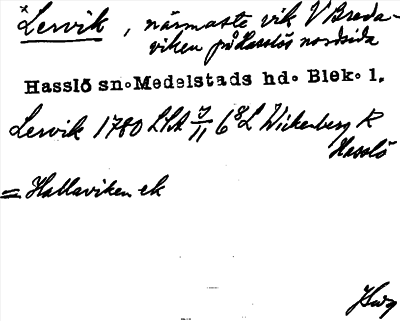 x Lervik, närmaste vik V Breda-
viken på Hasslös nordsida
Hasslö sn. Medelstads hd. Blek. l.
Lervik 1780 LSA J/11 6⁸ L Wickenberg R
Hasslö
= Hallaviken ek